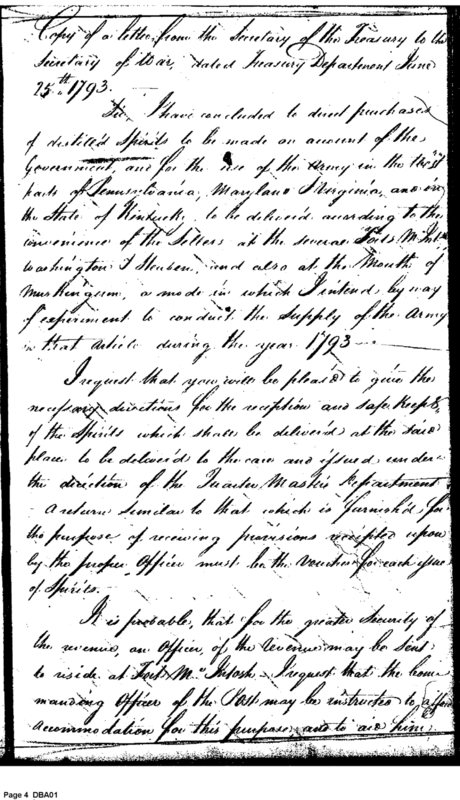 Copy of a letter from the Secretary of the Treasury to the
Secretary of War, dated Treasury Department June
25th. 1793.
Sir, I have concluded to direct purchases
of destilled Spirits to be made on account of the
Government, and for the use of the Army in the West
parts of Pennsylvania, Maryland & Virginia, and in
the State of Kentucky, to be deliver'd according to the
convenience of the Sellers at the several Forts Mc. Int
Washington & Steuben, and also at the Mouth of
Muskingum, a mode in which I intend by way
of experiment to conduct the Supply of the Army
in that article during the year 1793 —
I request that you will be pleas'd to give the
necessary directions for the reception and safe keeping
of the Spirits which shall be deliver'd at the said
place to be deliver'd to the care and issued under
the direction of the Quarter Master's Department
A return similar to that which is furnish'd for
the purpose of receiving provisions receipted upon
by the proper Officer must be the Voucher for each issue
of Spirits.
It is probable, that for the greater Security of
the revenue, an Officer, of the Revenue may be sent
to reside at Fort Mc. Intosh. I request that the Com
manding Officer of the Post may be instructed to afford
accommodation for this purpose, and to aid him,
Page 4 DBA01